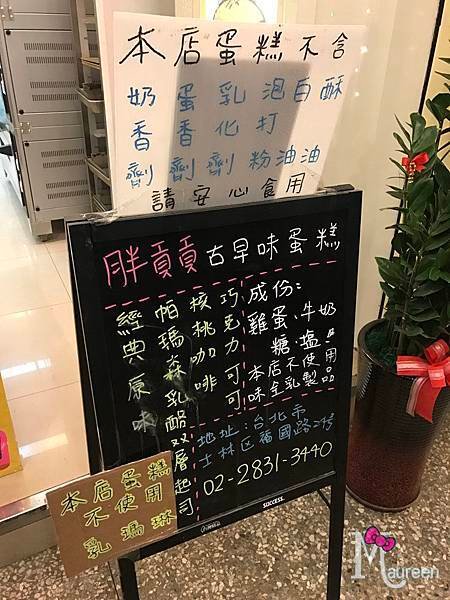 本店蛋糕不含
奶香劑
蛋香劑
乳化劑
泡打粉
白油
酥油
請安心食用
胖貢貢古早味蛋糕
經典原味
帕瑪森乳酪双層起司
核桃咖啡
巧克力可可
成份:
雞蛋、牛奶
糖、塩。
本店不使用
味全乳製品
地址:台北市
士林区福國路
02-2831-3440
SUCCESS.
本店蛋糕
不使用
乳瑪琳
Maureen